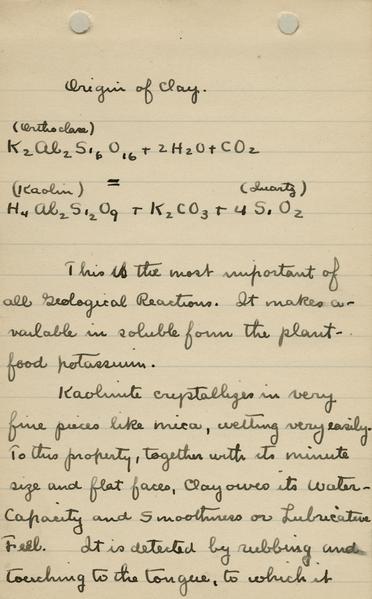 Origin of Clay.
(Orthoclase)
K2Al2Si6O16 + 2H2O + CO2
=
(Kaolin) (Quartz)
H4Al2Si2O9 + K2CO3 + 4SiO2
This is the most important of
all Geological Reactions. It makes a-
vailable in soluble form the plant-
food potassium.
Kaolinite crystallizes in very
fine pieces like mica, wetting very easily.
To this property, together with its minute
size and flat faces, Clay owes its Water-
Capacity and Smoothness or Lubricative
Feel. It is detected by rubbing and
touching to the tongue, to which it